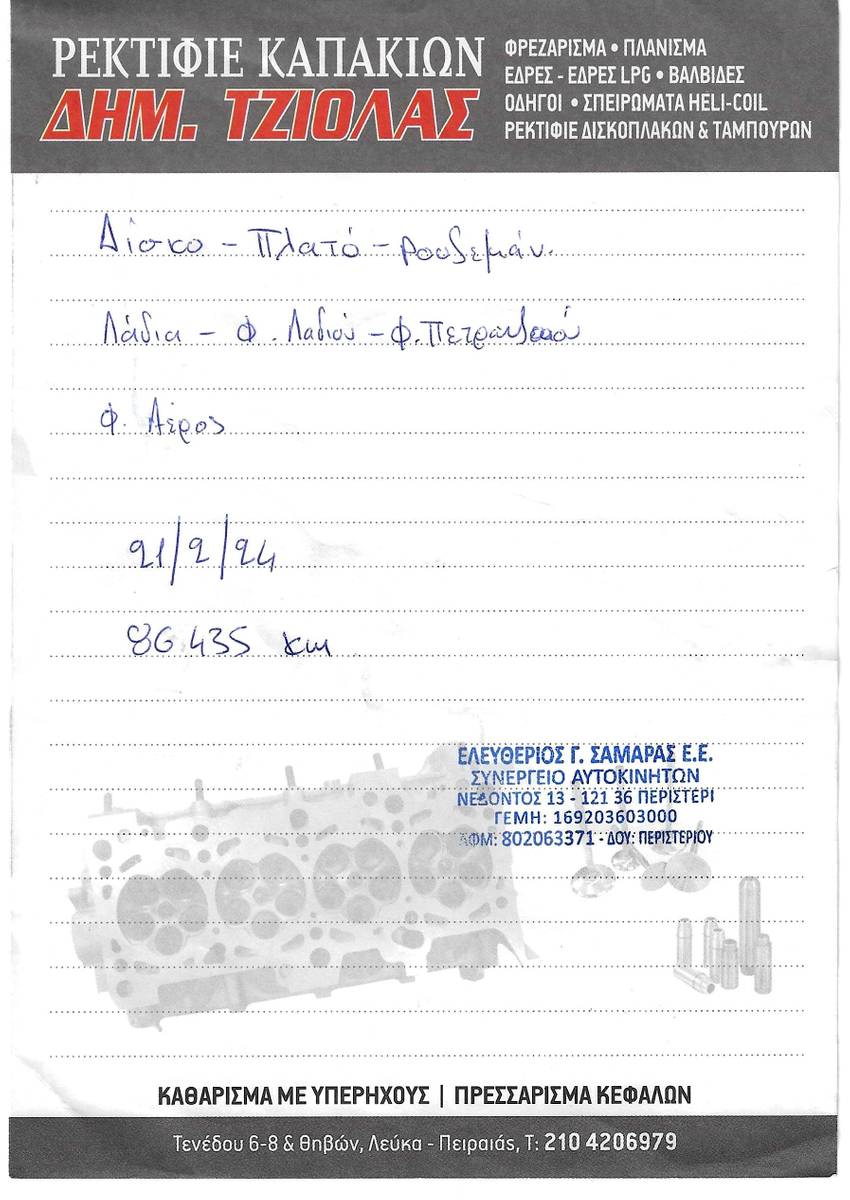 ΡΕΚΤΙΦΙΕ ΚΑΠΑΚΙΩΝ
ΔΗΜ. ΤΖΙΟΛΑΣ
ΦΡΕΖΑΡΙΣΜΑ • ΠΛΑΝΙΣΜΑ
ΕΔΡΕΣ - ΕΔΡΕΣ LPG • ΒΑΛΒΙΔΕΣ
ΟΔΗΓΟΙ • ΣΠΕΙΡΩΜΑΤΑ HELI-COIL
ΡΕΚΤΙΦΙΕ ΔΙΣΚΟΠΛΑΚΩΝ & ΤΑΜΠΟΥΡΩΝ
Δίσκο - Πλατό - Ρουλεμάν.
Λάδια - Φ. Λαδιού - Φ. Πετρελαίου
Φ. Αέρος
21/2/24
86.435 km
ΕΛΕΥΘΕΡΙΟΣ Γ. ΣΑΜΑΡΑΣ Ε.Ε.
ΣΥΝΕΡΓΕΙΟ ΑΥΤΟΚΙΝΗΤΩΝ
ΝΕΔΟΝΤΟΣ 13 - 121 36 ΠΕΡΙΣΤΕΡΙ
ΓΕΜΗ: 169203603000
ΑΦΜ: 802063371 - ΔΟΥ: ΠΕΡΙΣΤΕΡΙΟΥ
ΚΑΘΑΡΙΣΜΑ ΜΕ ΥΠΕΡΗΧΟΥΣ | ΠΡΕΣΣΑΡΙΣΜΑ ΚΕΦΑΛΩΝ
Τενέδου 6-8 & Θηβών, Λεύκα - Πειραιάς, Τ: 210 4206979